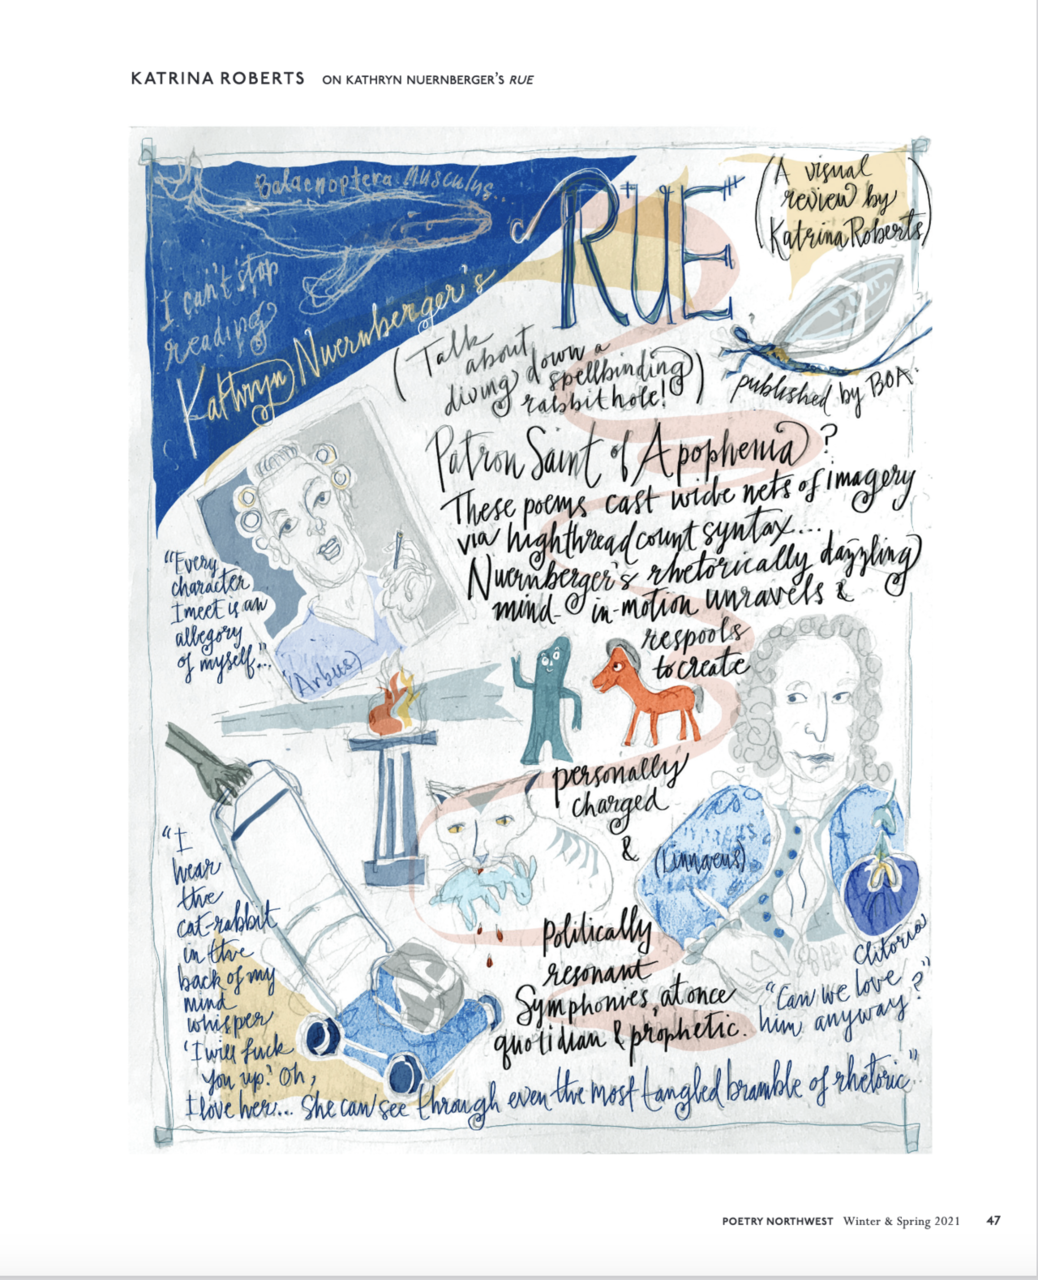 KATRINA ROBERTS ON KATHRYN NUERNBERGER'S RUE
Balaenoptera Musculus..
I can't stop
reading
Kathryn Nuernberger's
RUE
(A visual
review by
Katrina Roberts)
(Talk
about
diving down a
spellbinding
rabbit hole!)
published by BOA.
Patron Saint of Apophenia?
These poems cast wide nets of imagery
via highthreadcount syntax...
Nuernberger's rhetorically dazzling
mind-in-motion unravels &
respools
to create
"Every
character
I meet is an
allegory
of myself..."
(Arbus)
personally
charged
&
(Linnaeus)
Politically
resonant
Symphonies, at once
quotidian & prophetic.
Clitoria
"Can we love
him anyway?"
"I
hear
the
cat-rabbit
in the
back of my
mind
whisper
'I will fuck
you up.' Oh,
I love her... She can see through even the most tangled bramble of rhetoric."
POETRY NORTHWEST Winter & Spring 2021 47